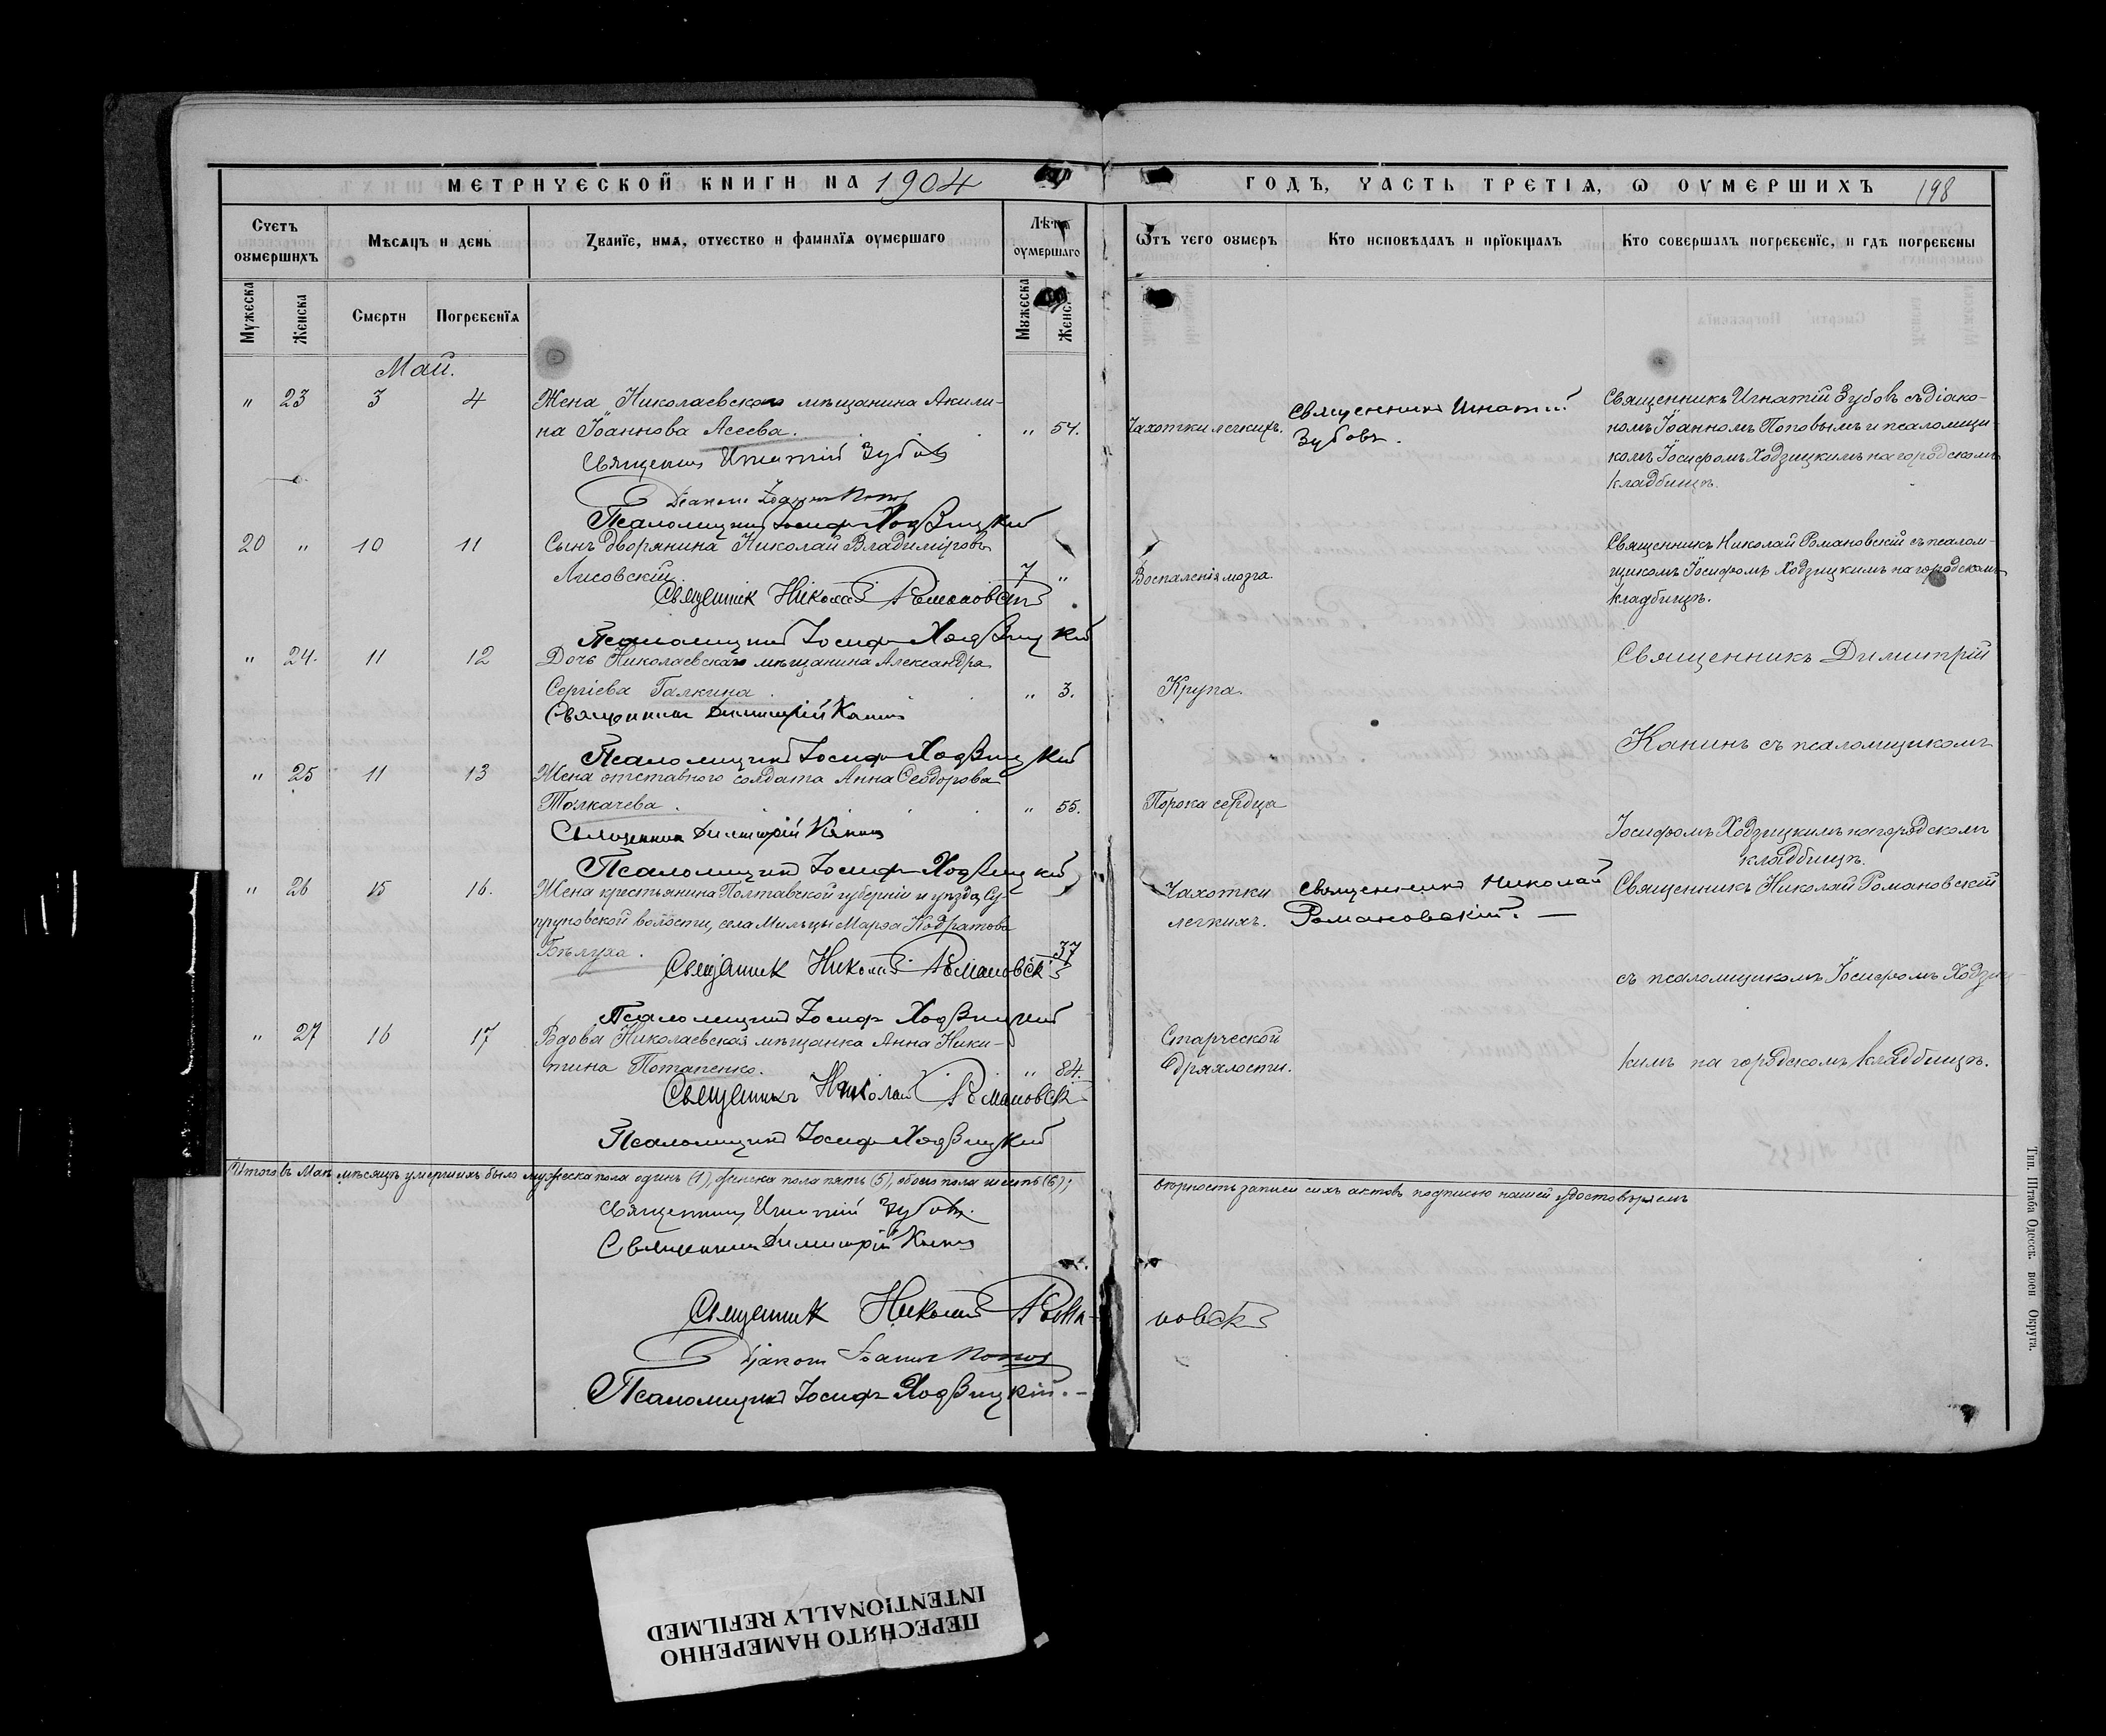 МЕТРИЧЕСКОЙ КНИГИ НА 1904
ГОДЪ, ЧАСТЬ ТРЕТІЯ, Ѡ ОУМЕРШИХЪ 198
Счетъ оумершихъ
Мѣсяцъ и день
Званїе, имя, отчество и фамилїя оумершаго
Лѣта оумершаго
Ѿтъ чего оумеръ
Кто исповѣдалъ и прїобщалъ
Кто совершалъ погребенїе, и гдѣ погребены
Мужеска
Женска
Смерти
Погребенїя
Мужеска
Женс
Май.
" 23 3 4 Жена Николаевскаго мѣщанина Акили-
на Іоаннова Асеева. " 54. Чахотки легкихъ.
Священникъ Игнатій
Зубовъ.
Священникъ Игнатій Зубовъ съ діако-
номъ Іоанномъ Поповымъ и псаломщи
комъ Іосифомъ Ходзицкимъ на городскомъ
кладбищѣ.
Священникъ Игнатій Зубовъ
Діаконъ Іоаннъ Поповъ
Псаломщикъ Іосифъ Ходзицкій
20 " 10 11 Сынъ дворянина Николай Владиміровъ
Лисовскій. 7 " Воспаленія мозга.
Священникъ Николай Романовскій съ псалом-
щикомъ Іосифомъ Ходзицкимъ на городскомъ
кладбищѣ.
Священник Николай Романовскій
Псаломщикъ Іосифъ Ходзицкій
" 24. 11 12 Дочь Николаевскаго мѣщанина Александра
Сергіева Галкина. " 3. Крупа.
Священникъ Димитрій
Священникъ Димитрій Канинъ
Псаломщикъ Іосифъ Ходзицкій
Канинъ съ псаломщикомъ
" 25 11 13 Жена отставного солдата Анна Ѳеодорова
Толкачева. " 55. Порока сердца
Священникъ Димитрій Канинъ
Іосифомъ Ходзицкимъ на городскомъ
кладбищѣ.
Псаломщикъ Іосифъ Ходзицкій
" 26 15 16. Жена крестьянина Полтавской губерніи и уѣзда, Су-
пруновской волости, села Мильцы Марѳа Кодратова
Бѣлуха. 37
Чахотки
легкихъ.
Священникъ Николай
Романовскій.
Священникъ Николай Романовскій
Священник Николай Романовскій
съ псаломщикомъ Іосифомъ Ходзиц-
Псаломщикъ Іосифъ Ходзицкій
" 27 16 17 Вдова Николаевская мѣщанка Анна Ники-
тина Потапенко. " 84.
Старческой
дряхлости.
кимъ на городскомъ кладбищѣ.
Священникъ Николай Романовскій
Псаломщикъ Іосифъ Ходзицкій
Итого въ Маѣ мѣсяцѣ умершихъ было мужеска пола одинъ (1), женска пола пять (5), обоего пола шесть (6);
вѣрность записи сихъ актовъ подписью нашей удостовѣряемъ
Священникъ Игнатій Зубовъ.
Священникъ Димитрій Канинъ
Священник Николай Рома-
новскій
Діаконъ Іоаннъ Поповъ
Псаломщикъ Іосифъ Ходзицкій.
Тип. Штаба Одесск. воен Округа.
ПЕРЕСНЯТО НАМЕРЕННО
INTENTIONALLY REFILMED